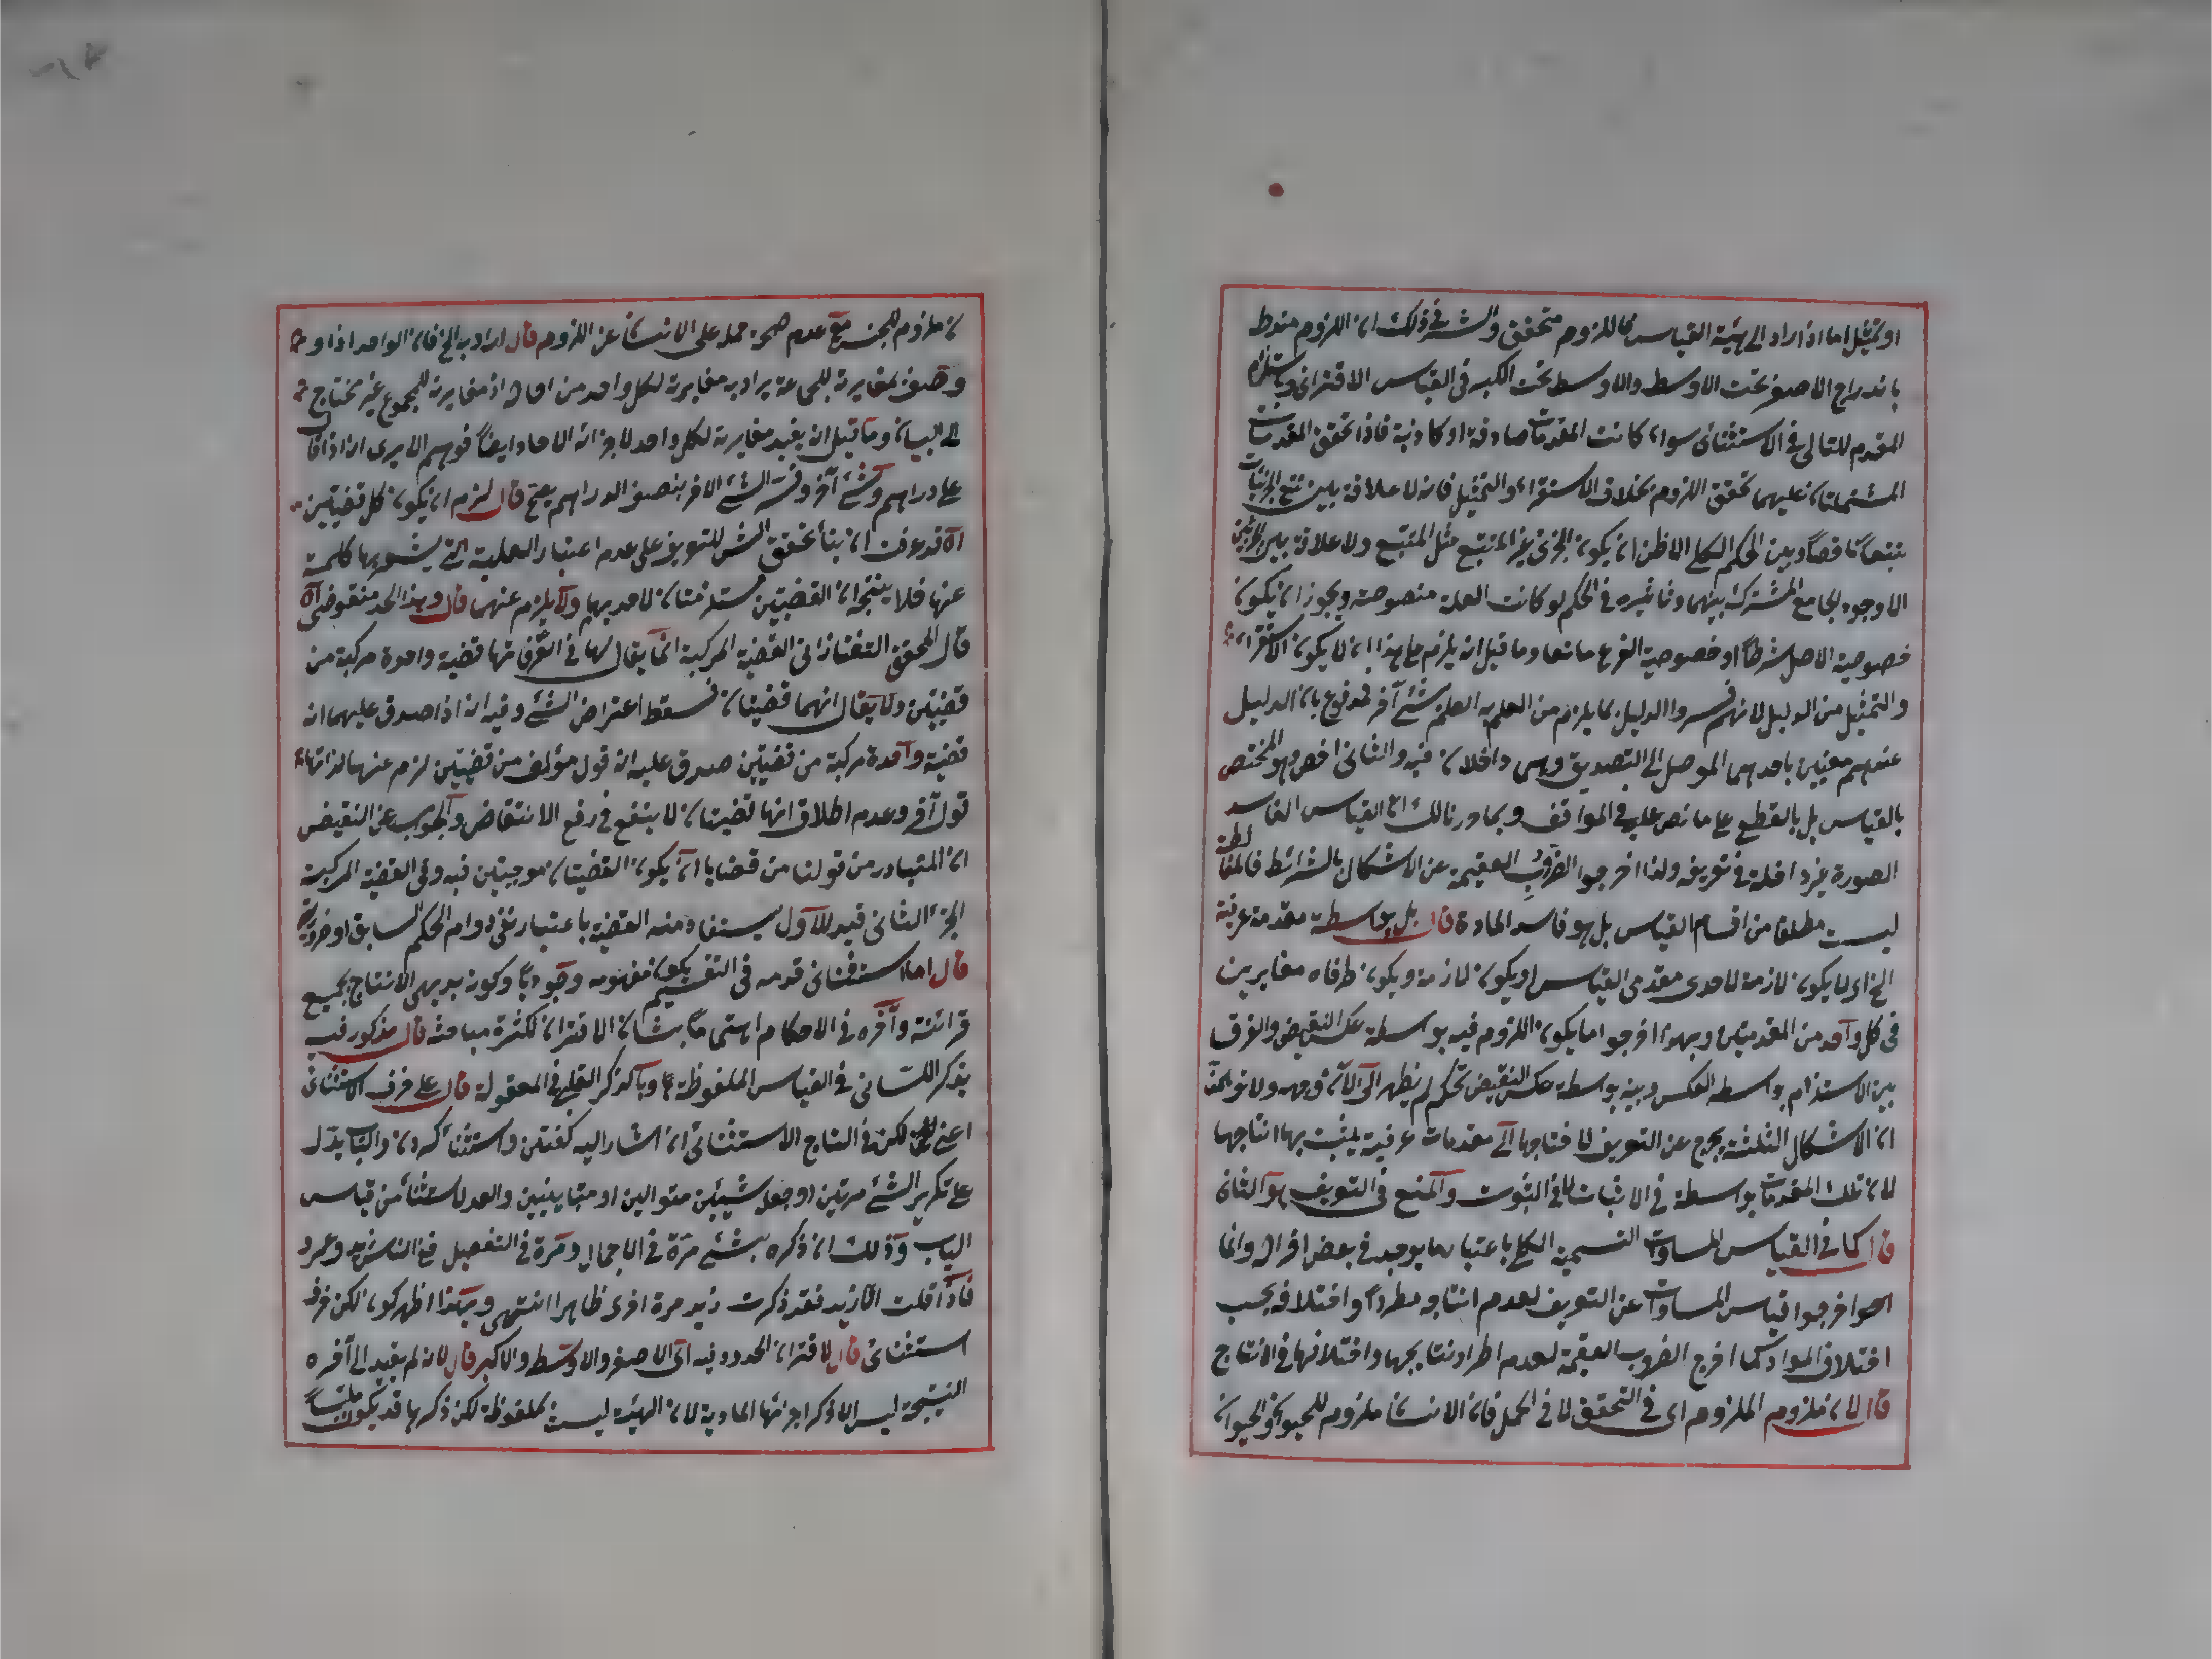 او تمثيل اما اذا اراد الى هيئة القياس فاللزوم متحقق والسر في ذلك ان اللزوم منوط
باندراج الاصغر تحت الاوسط والاوسط تحت الاكبر في القياس الاقتراني وباستلزام
المقدم للتالي في الاستثنائي سواء كانت المقدمات صادقة او كاذبة فاذا تحقق المقدمات
المشتملتان عليهما تحقق اللزوم بخلاف الاستقراء والتمثيل فانه لا علاقة بين تتبع الجزئيات
تتبعا ناقصا وبين الحكم الكلي الا ظن ان يكون الجزئي غير المتتبع مثل المتتبع ولا علاقة بين الجزئين
الا وجود الجامع المشترك بينهما وتاثيره في الحكم لو كانت العلة منصوصة ويجوز ان يكون
خصوصية الاصل شرطا او خصوصية الفرع مانعا وما قيل انه يلزم على هذا ان لا يكون الاستقراء
والتمثيل من الدليل لانهم فسروا الدليل بما يلزم من العلم به العلم بشئ آخر فمدفوع بان الدليل
عندهم معنيين احدهما الموصل الى التصديق وهما داخلان فيه والثاني اخص وهو المختص
بالقياس بل بالقطع على ما نص عليه في المواقف وبما ورنا لك ان القياس الفاسد
الصورة غير داخلة في تعريفه ولذا اخرجوا الضروب العقيمة عن الاشكال بالشرائط فالمغالطة
ليست مطلقا من اقسام القياس بل هو فاسد المادة قال بل بواسطة مقدمة غريبة
الخ اي لا يكون لازمة لاحدى مقدمي القياس او يكون لازمة ويكون طرفاه مغايرين
في كل واحد من المقدمتين وبهذا اخرجوا ما يكون اللزوم فيه بواسطة عكس النقيض والفرق
بين الاستلزام بواسطة العكس وبينه بواسطة عكس النقيض تحكم لم يظهر الى الآن وجهه ولا توهمن
ان الاشكال الثلثة يخرج عن التعريف لاحتياجها الى مقدمات غريبة يثبت بها انتاجها
لان تلك المقدمات بواسطة في الاثبات لا في الثبوت والمنع في التعريف هو الثاني
قال كما في القياس المساوات التسمية الكل باعتبار ما يوجد في بعض افراده وانما
اخرجوا قياس المساوات عن التعريف لعدم انتاجه مطردا واختلافه بحسب
اختلاف المواد كما اخرج الضروب العقيمة لعدم اطراد نتايجها واختلافها في الانتاج
قال لان ملزوم الملزوم اي في التحقق لا في الحمل فان الانسان ملزوم للحيوان والحيوان
ن ملزوم للجنس مع عدم صحة حمله على الانسان عن اللزوم قال اراد به الخ فان الواحد اذا
وصف بمغايرته للجماعة يراد به مغايرته لكل واحد من احاده اذ مغايرته للمجموع غير محتاج
الى البيان وما قيل انه يفيد مغايرته لكل واحد لاجزائه الاحاد ايضا فوهم الا يرى انه اذا قال
على دراهم وشئ آخر وفسر الشئ الاخر بنصف الدراهم يصح قال لزم ان يكون كل قضيتين
اه قد عرفت ان بناء تحقق الشئ للتعريف على عدم اعتبار العلية التي يشعر بها كلمة
عنها فلا يتجه ان القضيتين مستلزمتان لاحديهما ولا يلزم عنهما قال وهذا الحد منقوض اه
قال المحقق التفتازاني القضية المركبة انما يقال لها في العرف انها قضية واحدة مركبة من
قضيتين ولا يقال انهما قضيتان فسقط اعتراض الشئ وفيه انه اذا صدق عليهما انه
قضية واحدة مركبة من قضيتين صدق عليه انه قول مؤلف من قضيتين لزم عنهما لذاتهما
قول آخر وعدم اطلاق انها قضيتان لا ينفع في رفع الانتقاض والجواب عن النقيض
ان المتبادر من قولنا من قضايا ان يكون القضيتان موجبتين فيه وفي القضية المركبة
الجزء الثاني قيد للاول يستفاد منه القضية باعتبار نفي دوام الحكم السابق او ضروريته
قال اما استثنائي قدمه في التقسيم لكون مفهومه وجوديا وكونه بديهي الانتاج بجميع
قرائنة وآخره في الاحكام اهتماما بشان الاقتران لكثرة مباحثه قال مذكور فيه
بذكر اللساني في القياس الملفوظة وبالذكر القلبي في المعقولة قال على حرف الاستثناء
اعني لكن في التاج الاستثناء ان اشار اليه كفتن واستثناء كردن والباب يدل
على تكرير الشئ مرتين او جعل شيئين متوالين او متباينين والعد لاستثناء من قياس
الباب وذلك ان ذكره بشئ مرة في الاجمال ومرة في التفصيل ففي الناس زيد وعمرو
فاذا قلت الا زيد فقد ذكرت زيد مرة اخرى ظاهرا انتهى وبهذا اظهر كون لكن حرف
استثنائي قال لاقتران الحدود فيه اي الاصغر والاوسط والاكبر قال لانه لم يفيد الى آخره
النتيجة ليس الا ذكر اجزائها المادية لان الهيئة ليست بملفوظة لكن ذكرها قد يكون ملتبسا